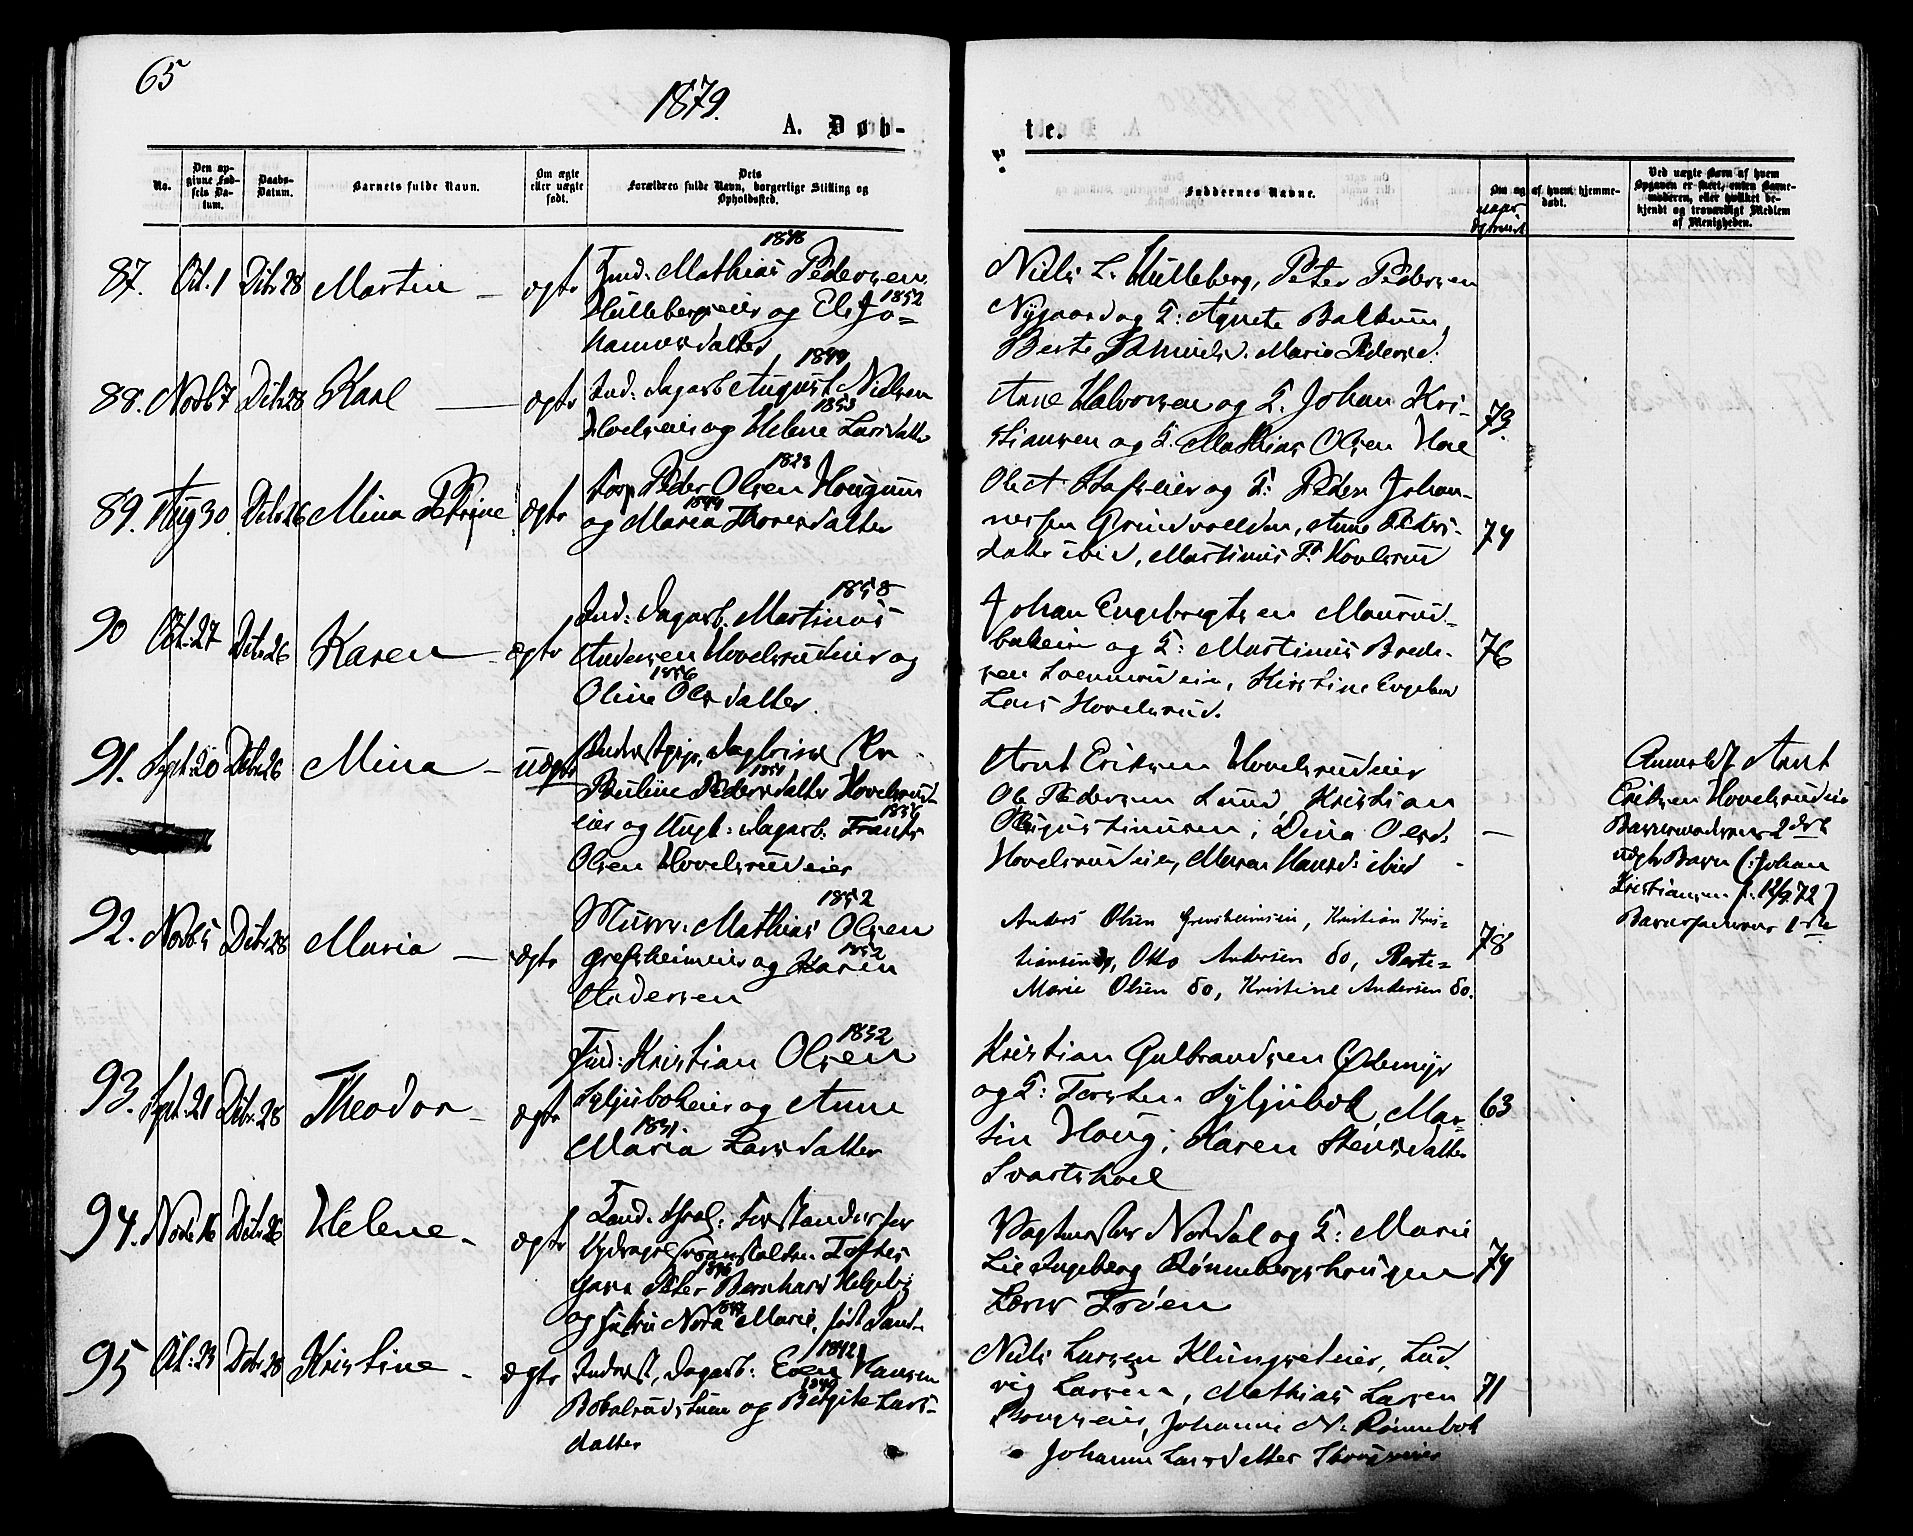 65
1879.
A. Døb-
te.
No.
Den op-
givne Fød-
sels Da-
tum.
Daabs-
Datum.
Barnets fulde Navn.
Om ægte
eller uægte
født.
Dets
Forældres fulde Navn, borgerlige Stilling og
Opholdssted.
Faddernes Navne.
Om og af hvem hjemme-
døbt.
Ved uægte Børn af hvem
Opgaven er skeet, enten Barne-
moderen, eller hvilket be-
kjendt og troværdigt Medlem
af Menigheden.
87. Oct. 1 Dcbr 28 Martin — ægte
Mathias Pedersen
Hullebergseier og Else Jo-
1852
hannesdatter
Niels L. Hulleberg, Peter Pedersen
Nygaard og G: Agnete Balkum,
Berte Marie Pedersd.
88. Novb 7 Dcbr 28 Karl — ægte
1849
Ind: Dagarb. August Nielsen
1853
Hoelseier og Helene Larsdatter
Arne Halvorsen og G. Johan Kri-
stiansen og G. Mathias Olsen Hoel
73.
89. Aug 30 Dcbr 26 Mina Petrine ægte
1823
Peder Olsen Hougum
og Maren Thoresdatter
Peder Johan-
nessen Grindvolden, Anne Peders-
datter ibid, Martinus P. Hovelsrud
74
90 Oct. 27 Dcbr 26 Karen — ægte
1858
Ind: Dagarb. Martinus
Andersen Hovelsrudeier og
1856
Oline Olsdatter.
Johan Engebregtsen Maurud-
bakken og G: Martinus Brede-
sen Kirstine
Lars Hovelsrud.
76
91. Sept. 20 Dcbr 26 Mina — uægte
Pauline Pedersdatter Hovelsrud-
eier og Ungk: Dagarb. Frants
Olsen Hovelsrudeier
Arnt Eriksen Hovelsrudeier
Ole Pedersen Lund Kristian
Augustinusen, Dina Olsd.
Hovelsrudeier, Maren Hansd: ibid
—
Anmeldt Arnt
Eriksen Hovelsrudeier
Barnemoderens 2det
uægte Barn (: Johan
Kristiansen f. 12/9 72)
Barnefaderens 1ste
92. Novb 5 Dcbr 28 Maria — ægte
1852
Murer: Mathias Olsen
1852
Grefsheimeier og Karen
Andersen
Anders Olsen Grefsheimeier, Kristian Kris-
tiansen, Otto Andersen do, Berte-
Marie Olsen do, Kristine Andersen do.
78
93. Sept. 21 Dcbr 28 Theodor — ægte
1832
Ind: Kristian Olsen
Syljubakeier og Anne
Maria Larsdatter
Kristian Gulbrandsen Ødemyr
og G: Torsten Syljubak, Mar-
tin Houg, Karen Stensdatter
Svartshoel
63
94. Novb 16 Dcbr 26 Helene — ægte
Cand. theol: Forstander for
Opdragelsesanstalten Toftes
Gave Peter Bernhard Helgeby
og Hustru Nora Marie, født Sand-
Vagtmester Nordal og G: Marie
Lie Ingeberg Rønnebergshougen
Lærer Frøen
74
95 Oct. 23 Dcbr 28 Kristine — ægte
1842
Inderst, Dagarb: Even Hansen
1840
Bobalsrudstuen og Birgite Lars-
datter
Niels Larsen Klungseteier, Lud-
vig Larsen, Mathias Larsen
Johanne N. Rønnebak
Johanne Larsdatter
71